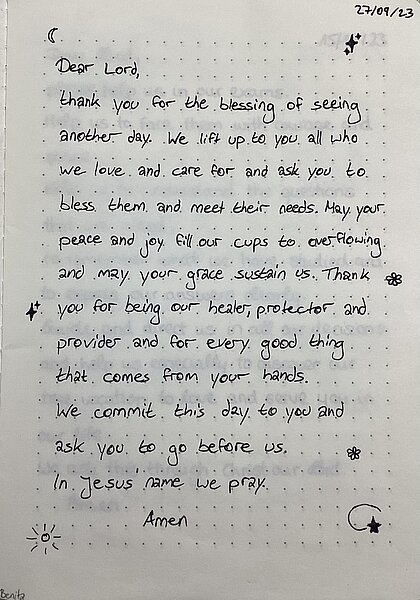 27/09/23
Dear Lord,
thank you for the blessing of seeing
another day. We lift up to you all who
we love and care for and ask you to
bless them and meet their needs. May your
peace and joy fill our cups to overflowing
and may your grace sustain us. Thank
you for being our healer, protector and
provider and for every good thing
that comes from your hands.
We commit this day to you and
ask you to go before us.
In Jesus' name we pray.
Amen
Benita